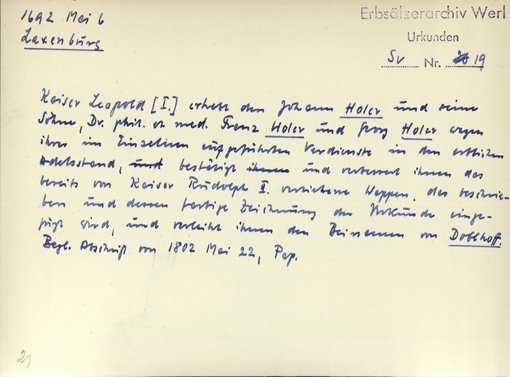 1692 Mai 6
Laxenburg
Erbsälzerarchiv Werl
Urkunden
Sv Nr. 19
Kaiser Leopold [I.] erhebt den Johann Holer und seine
Söhne, Dr. phil. et med. Franz Holer und Georg Holer wegen
ihrer im Einzelnen aufgeführten Verdienste in den erblichen
Adelsstand, und bestätigt ihnen und verbessert ihnen das
bereits von Kaiser Rudolph II. verliehene Wappen, das beschrie-
ben und dessen farbige Zeichnung der Urkunde einge-
fügt wird, und verleiht ihnen den Beinamen von Doblhoff.
Begl. Abschrift von 1802 Mai 22, Pap.